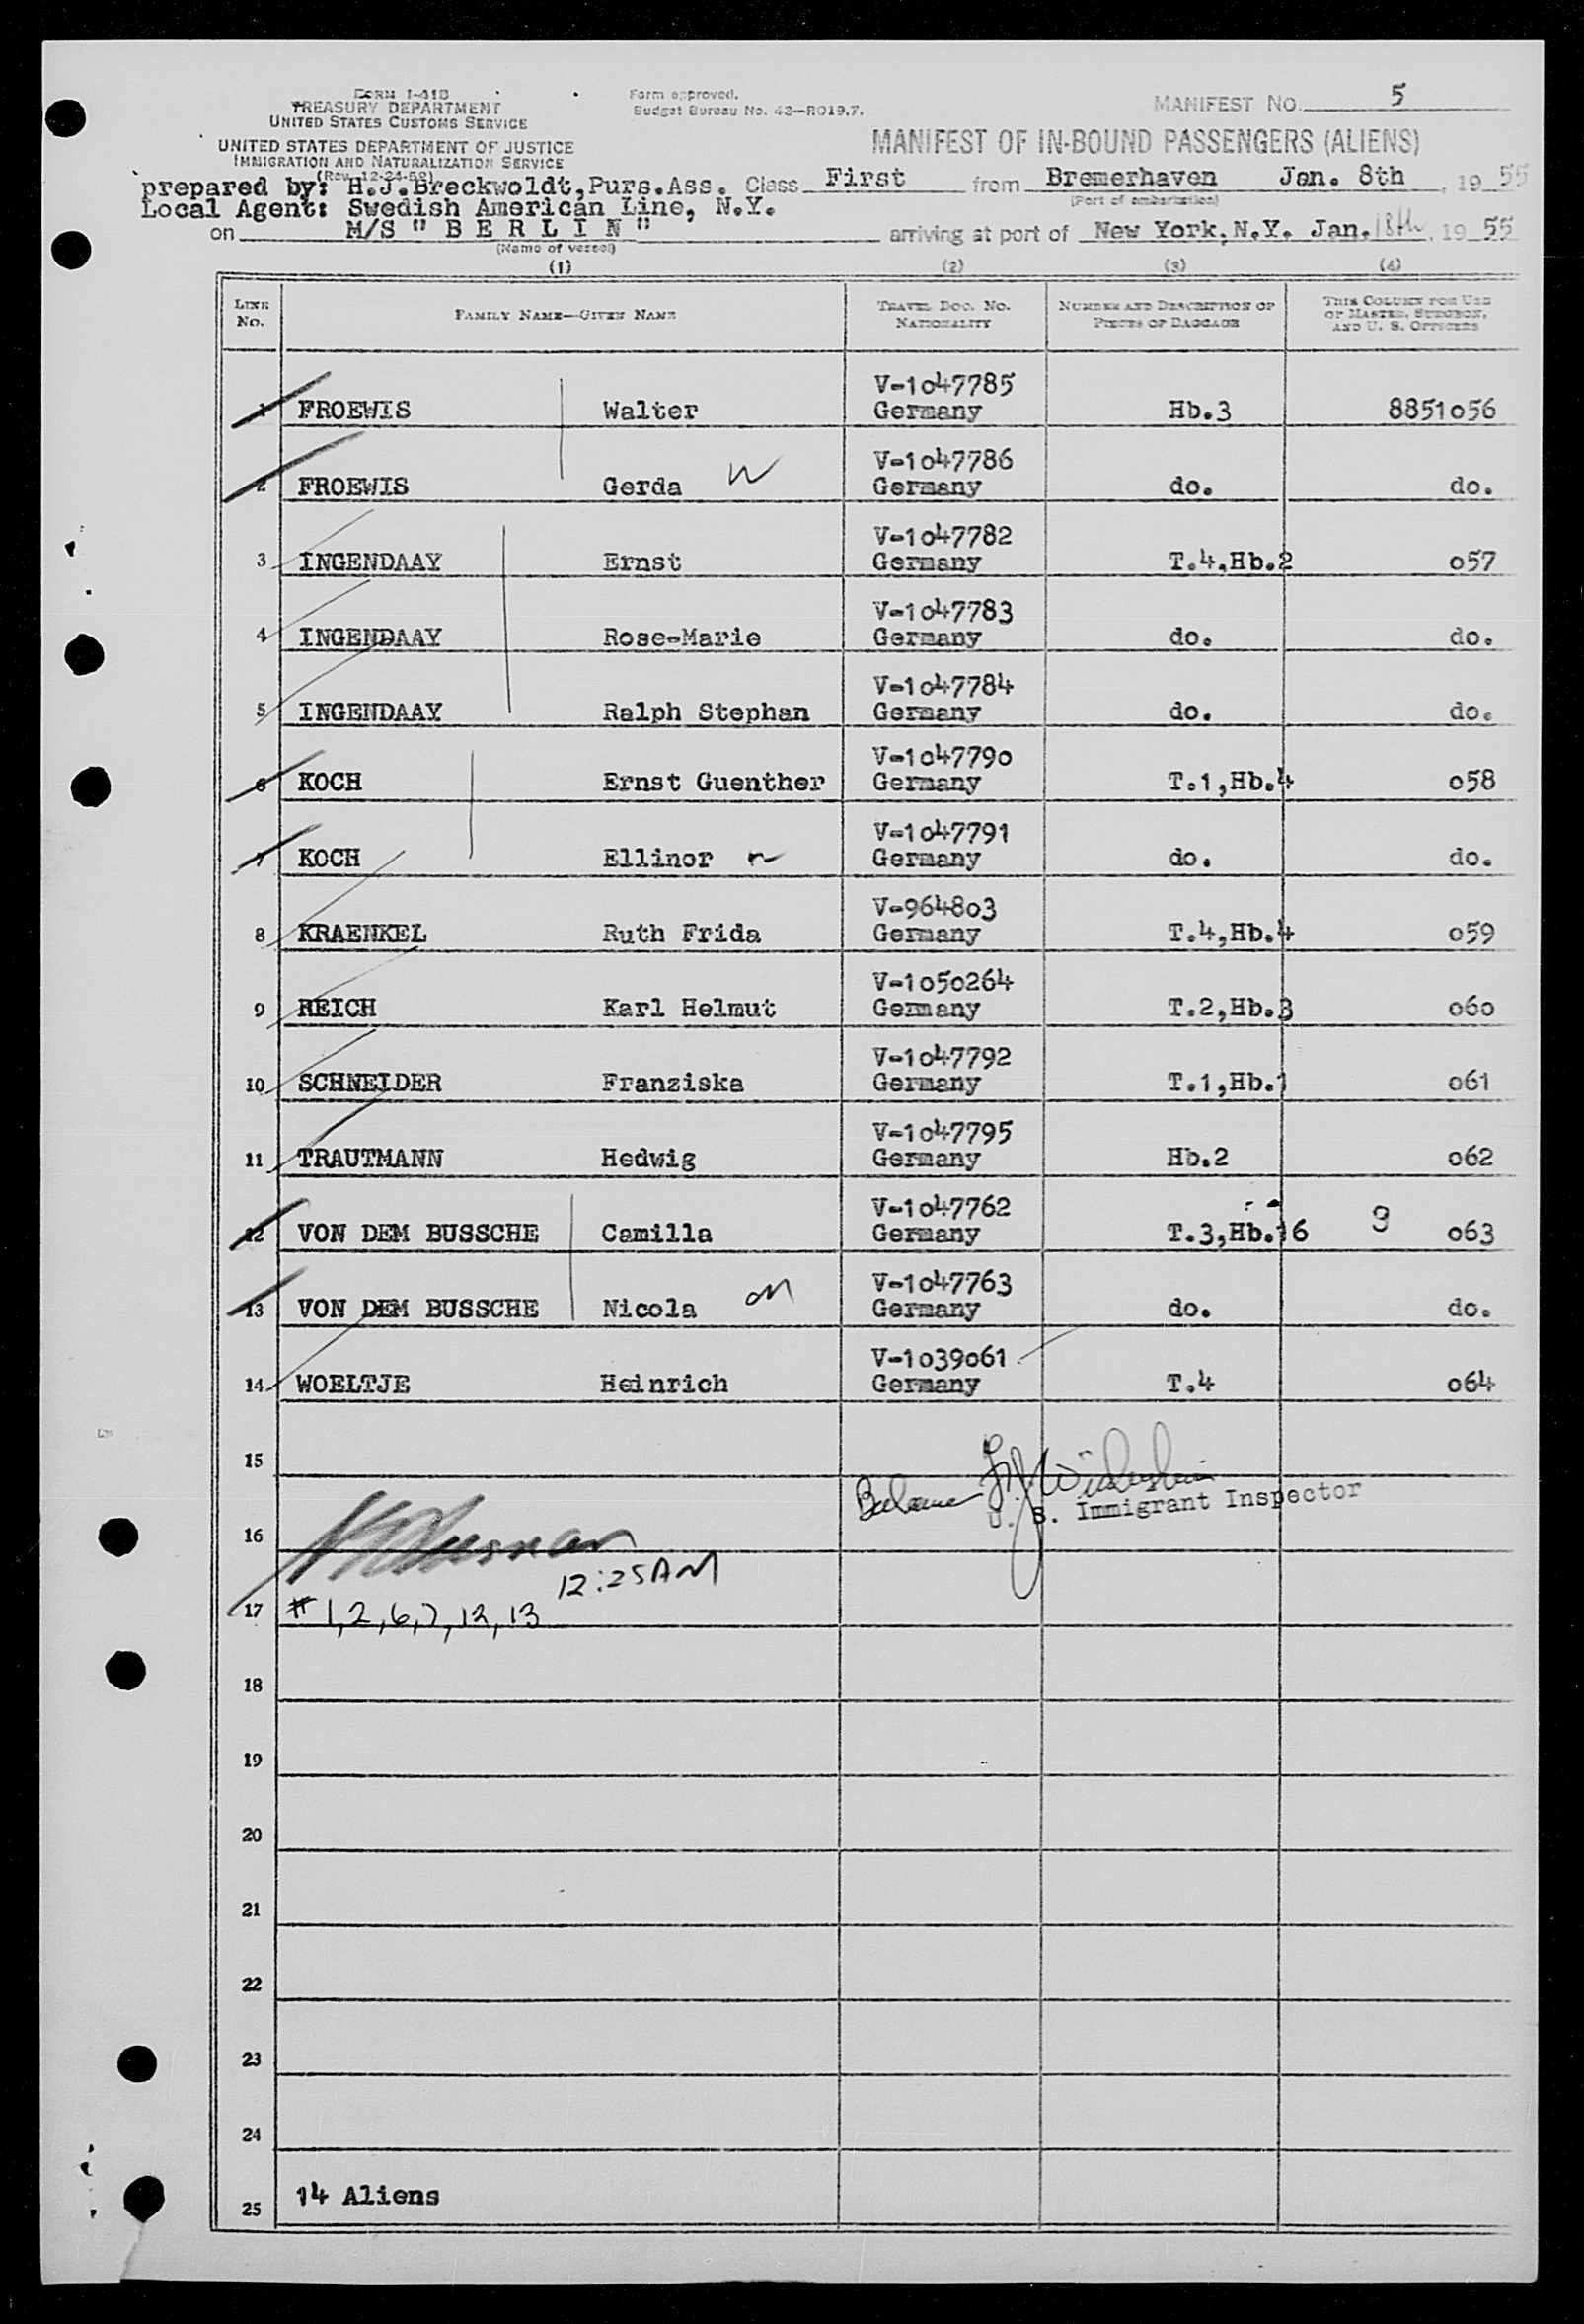 FORM I-418
TREASURY DEPARTMENT
UNITED STATES CUSTOMS SERVICE
UNITED STATES DEPARTMENT OF JUSTICE
IMMIGRATION AND NATURALIZATION SERVICE
(Rev. 12-24-52)
Form approved.
Budget Bureau No. 43—R019.7.
MANIFEST NO. 5
MANIFEST OF IN-BOUND PASSENGERS (ALIENS)
prepared by: H.J.Breckwoldt,Purs.Ass. Class First from Bremerhaven Jan. 8th, 19 55
(Port of embarkation)
Local Agent: Swedish American Line, N.Y.
on M/S "B E R L I N" arriving at port of New York, N.Y. Jan. 18th, 19 55
(Name of vessel)
(1) (2) (3) (4)
LINE No. FAMILY NAME—GIVEN NAME TRAVEL DOC. NO. NATIONALITY NUMBER AND DESCRIPTION OF PIECES OF BAGGAGE THIS COLUMN FOR USE OF MASTER, SURGEON, AND U. S. OFFICERS
V-1047785
1 FROEWIS Walter Germany Hb.3 8851056
V-1047786
2 FROEWIS Gerda W Germany do. do.
V-1047782
3 INGENDAAY Ernst Germany T.4,Hb.2 057
V-1047783
4 INGENDAAY Rose-Marie Germany do. do.
V-1047784
5 INGENDAAY Ralph Stephan Germany do. do.
V-1047790
6 KOCH Ernst Guenther Germany T.1,Hb.4 058
V-1047791
7 KOCH Ellinor Germany do. do.
V-964803
8 KRAENKEL Ruth Frida Germany T.4,Hb.4 059
V-1050264
9 REICH Karl Helmut Germany T.2,Hb.3 060
V-1047792
10 SCHNEIDER Franziska Germany T.1,Hb.1 061
V-1047795
11 TRAUTMANN Hedwig Germany Hb.2 062
V-1047762
12 VON DEM BUSSCHE Camilla Germany T.3,Hb.16 9 063
V-1047763
13 VON DEM BUSSCHE Nicola Germany do. do.
V-1039061
14 WOELTJE Heinrich Germany T.4 064
15
Balance
U. S. Immigrant Inspector
16
12:25AM
17 # 1,2,6,7,12,13
18
19
20
21
22
23
24
25 14 Aliens